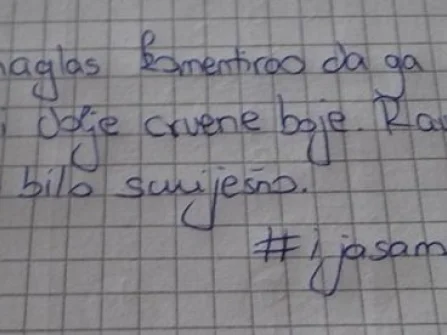 naglas komentirao da ga
dolje crvene boje. Ra
bilo smiješno.
#ijasam